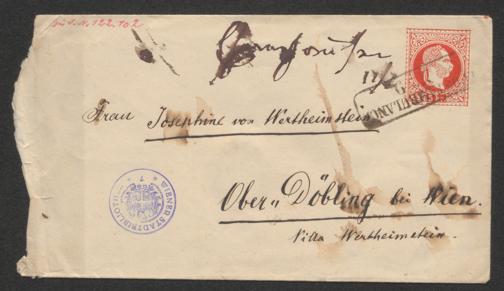 122.102
Frau Josephine von Wertheimstein
Ober„ Döbling bei Wien.
Villa Wertheimstein.
WIENER STADTBIBLIOTH